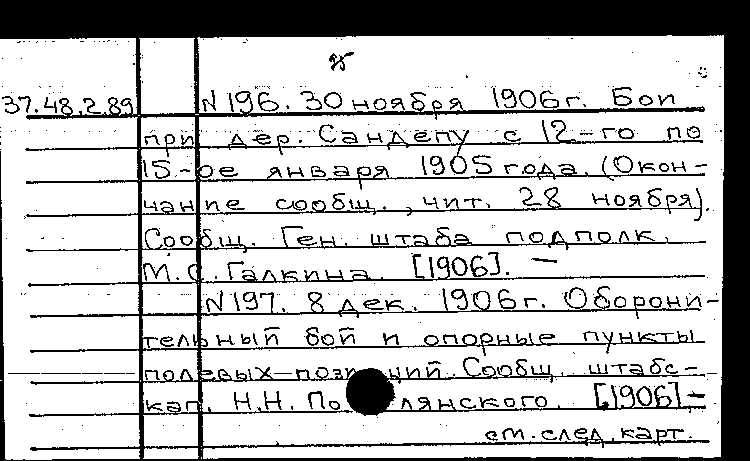 37.48.2.89 N196. 30 ноября 1906г. Бои
при дер. Сандепу с 12-го по
15-ое января 1905 года. (Окон-
чание сообщ., чит. 28 ноября).
Сообщ. Ген. штаба подполк.
М.С. Галкина. [1906]. —
N197. 8 дек. 1906г. Оборони-
тельный бой и опорные пункты
полевых позиций. Сообщ. штабс-
кап. Н.Н. [1906]-
см. след. карт.